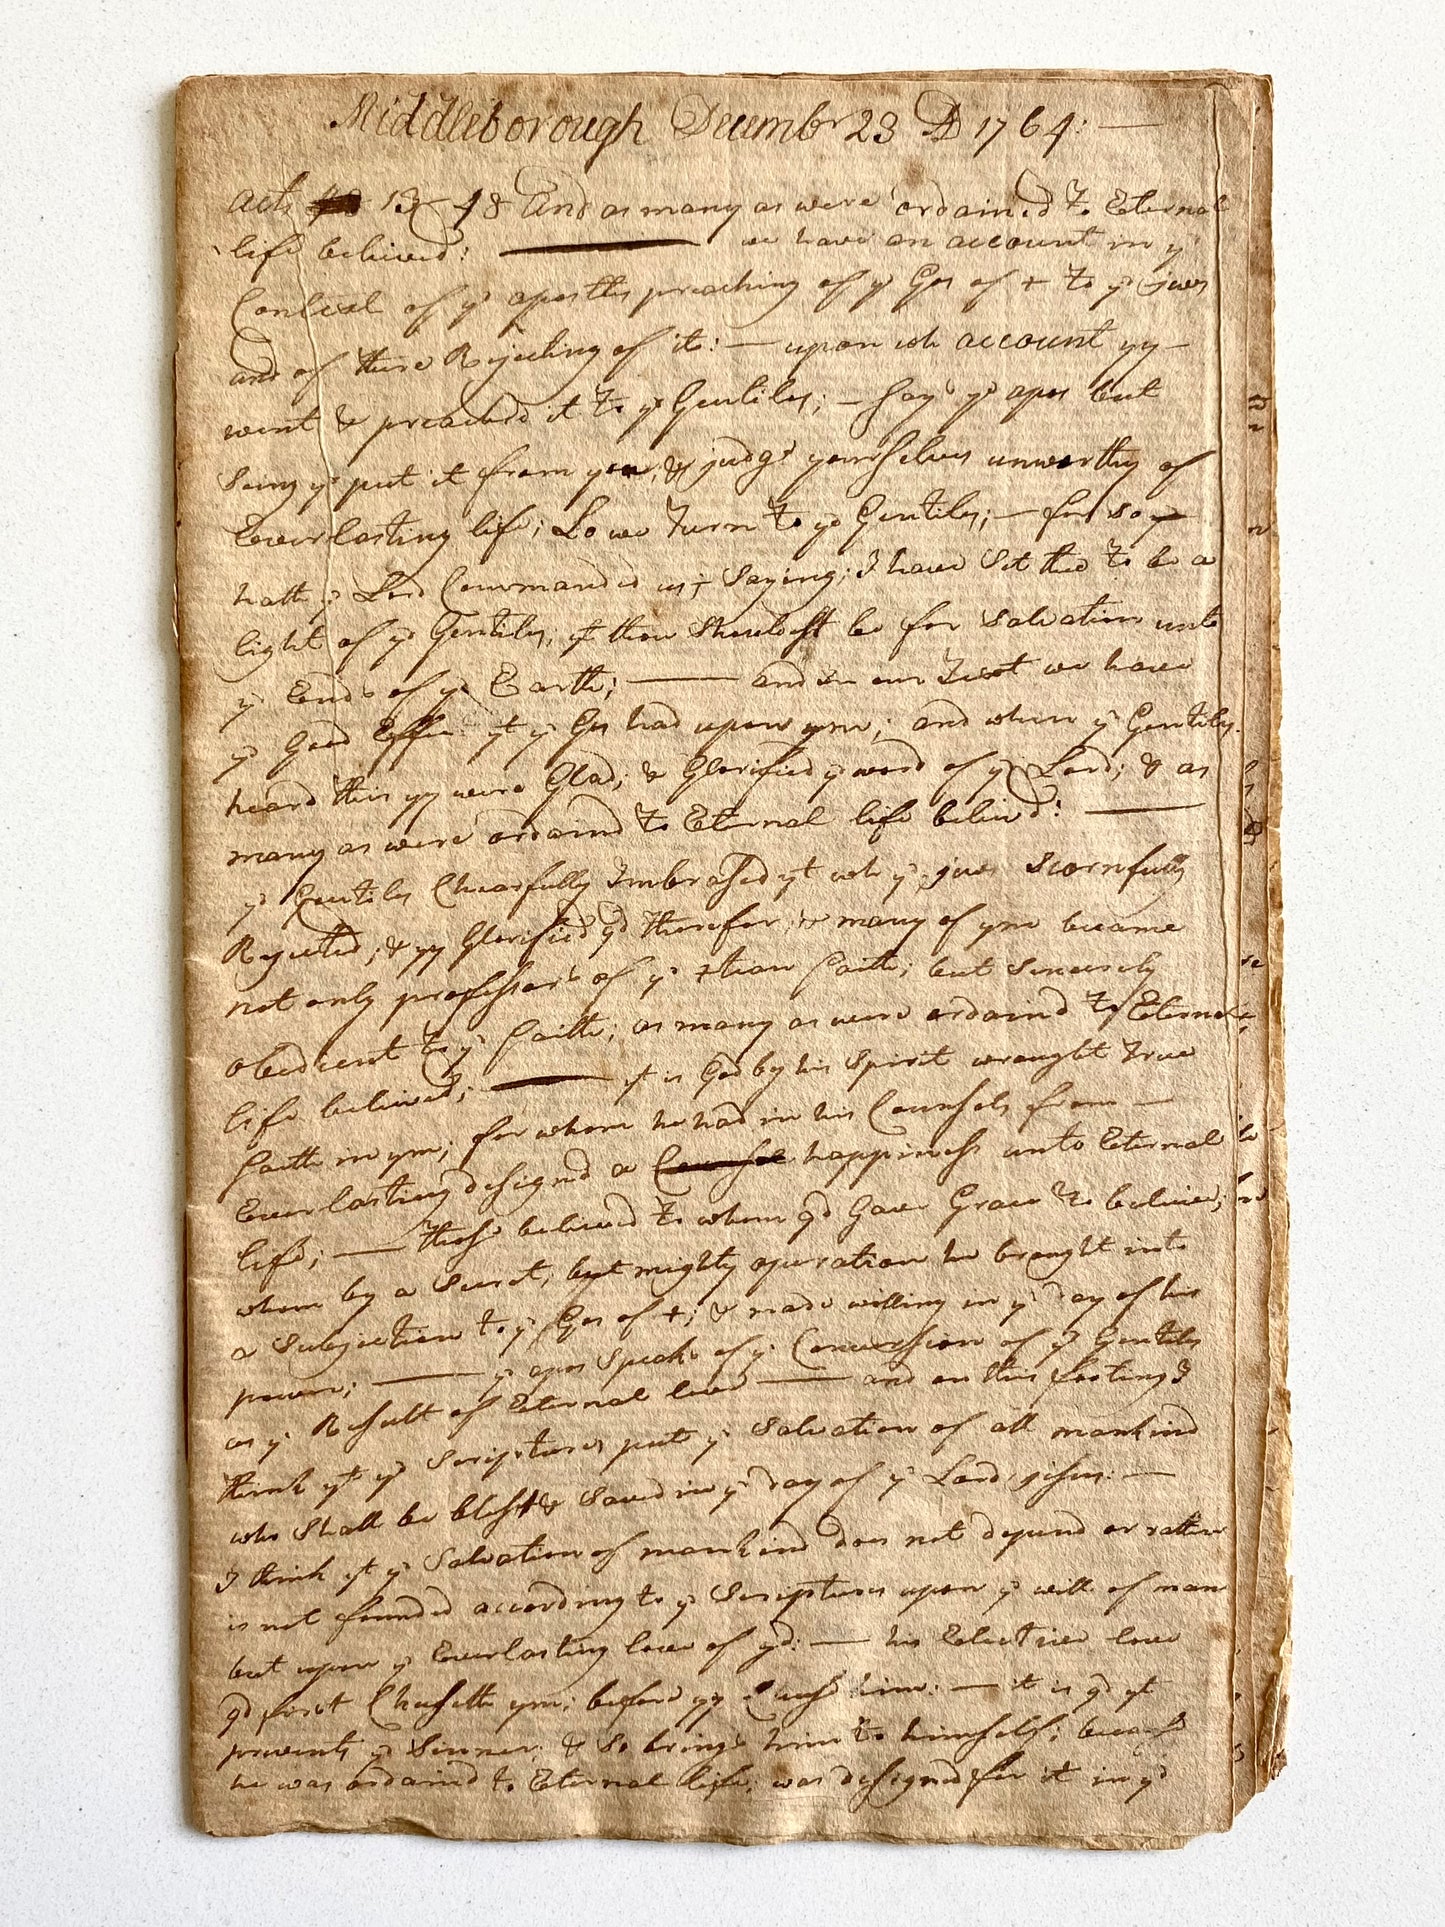 Middleborough Decembr 23 AD 1764:—
Acts 13–48 And as many as were ordained to Eternal
life believed: — we have an account in ye
Context of ye apostles preaching of ye Gos of + to ye jews
and of there Rejecting of it: — upon wh account yy —
went & preached it to ye Gentiles; — says ye apos but
Seing ye put it from you; & judge yourselves unworthy of
Everlasting life; Lo we Turn to ye Gentiles; — for so
hath ye Lord Commanded us; Saying; I have Set thee to be a
light of ye Gentiles, yt thou Shouldst be for Salvation unto
ye Ends of ye Earth; — and in our Text we have
ye Good Effect yt ye Gos had upon ym; and when ye Gentiles
heard this yy were Glad; & Glorified ye word of ye Lord; & as
many as were ordaind to Eternal life believd: —
ye Gentiles Chearfully Imbrased yt wh ye jues Scornfully
Rejected; & yy Glorified gd therefor; & many of ym became
not only professors of ye +tian faith; but Sincerely
obedient to ye faith; as many as were ordaind to Eternal
life believed; — it is God by his Spirit wrought True
faith in ym; for whom he had in his Counsels from —
Everlasting designd a happiness unto Eternal
life; — those believed to whom gd Gave Grace to believe;
whom by a Secret, but mighty operation he brought into
a Subjection to ye Gos of +; & made willing in ye day of his
power; — ye apos Speaks of ye Conversion of ye Gentiles
as ye Result of Eternal love — and on this footing I
think yt ye Scriptures puts ye Salvation of all mankind
who Shall be blest & Saved in ye day of ye Lord jesus: —
I think yt ye Salvation of mankind does not depend or rather
is not founded according to ye Scriptures upon ye will of man
but upon ye Everlasting love of gd: — his Elective love
gd first Chuseth ym; before yy Chuse him: — it is gd yt
prevents ye Sinner; & So brings him to himself; because
he was ordaind to Eternal life; was designed for it in ye